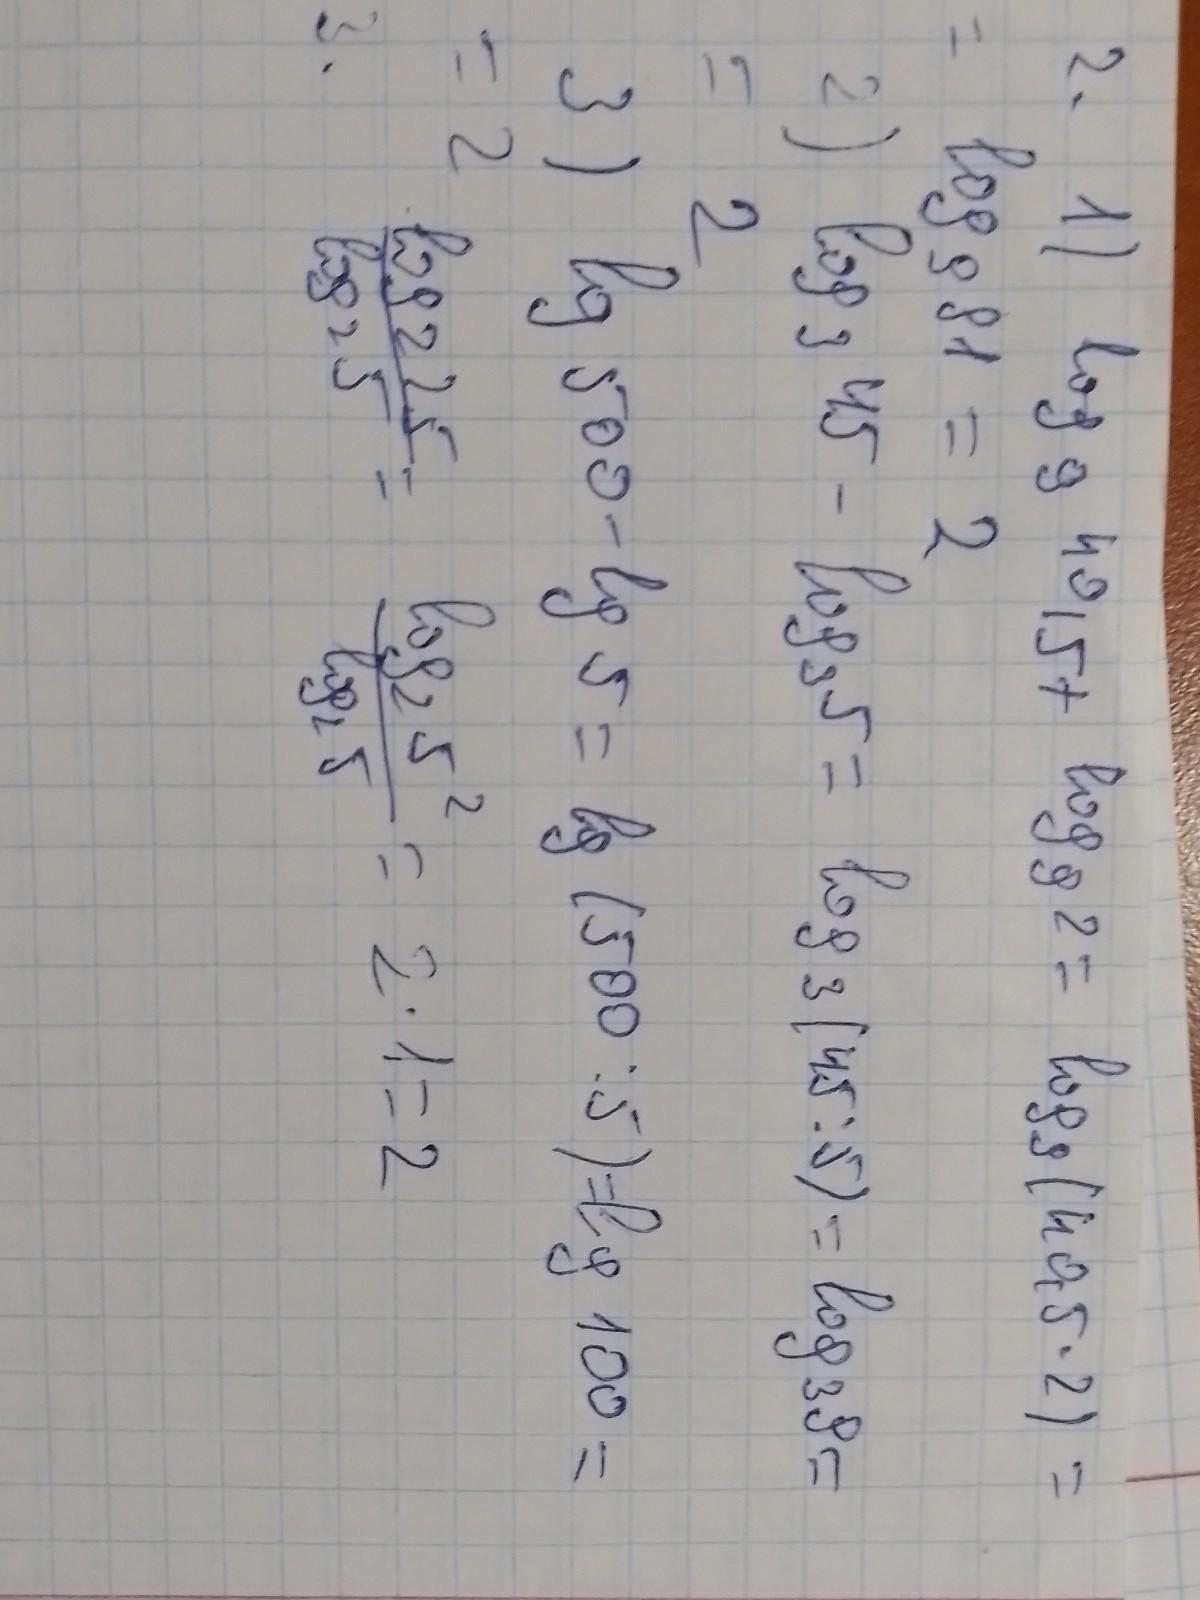 2. 1) log₉ 40,5 + log₉ 2 = log₉ (40,5 · 2) =
= log₉ 81 = 2
2) log₃ 45 - log₃ 5 = log₃ (45 : 5) = log₃ 9 =
= 2
3) lg 500 - lg 5 = lg (500 : 5) = lg 100 =
= 2
3. log₂ 25 / log₂ 5 = log₂ 5² / log₂ 5 = 2 · 1 = 2